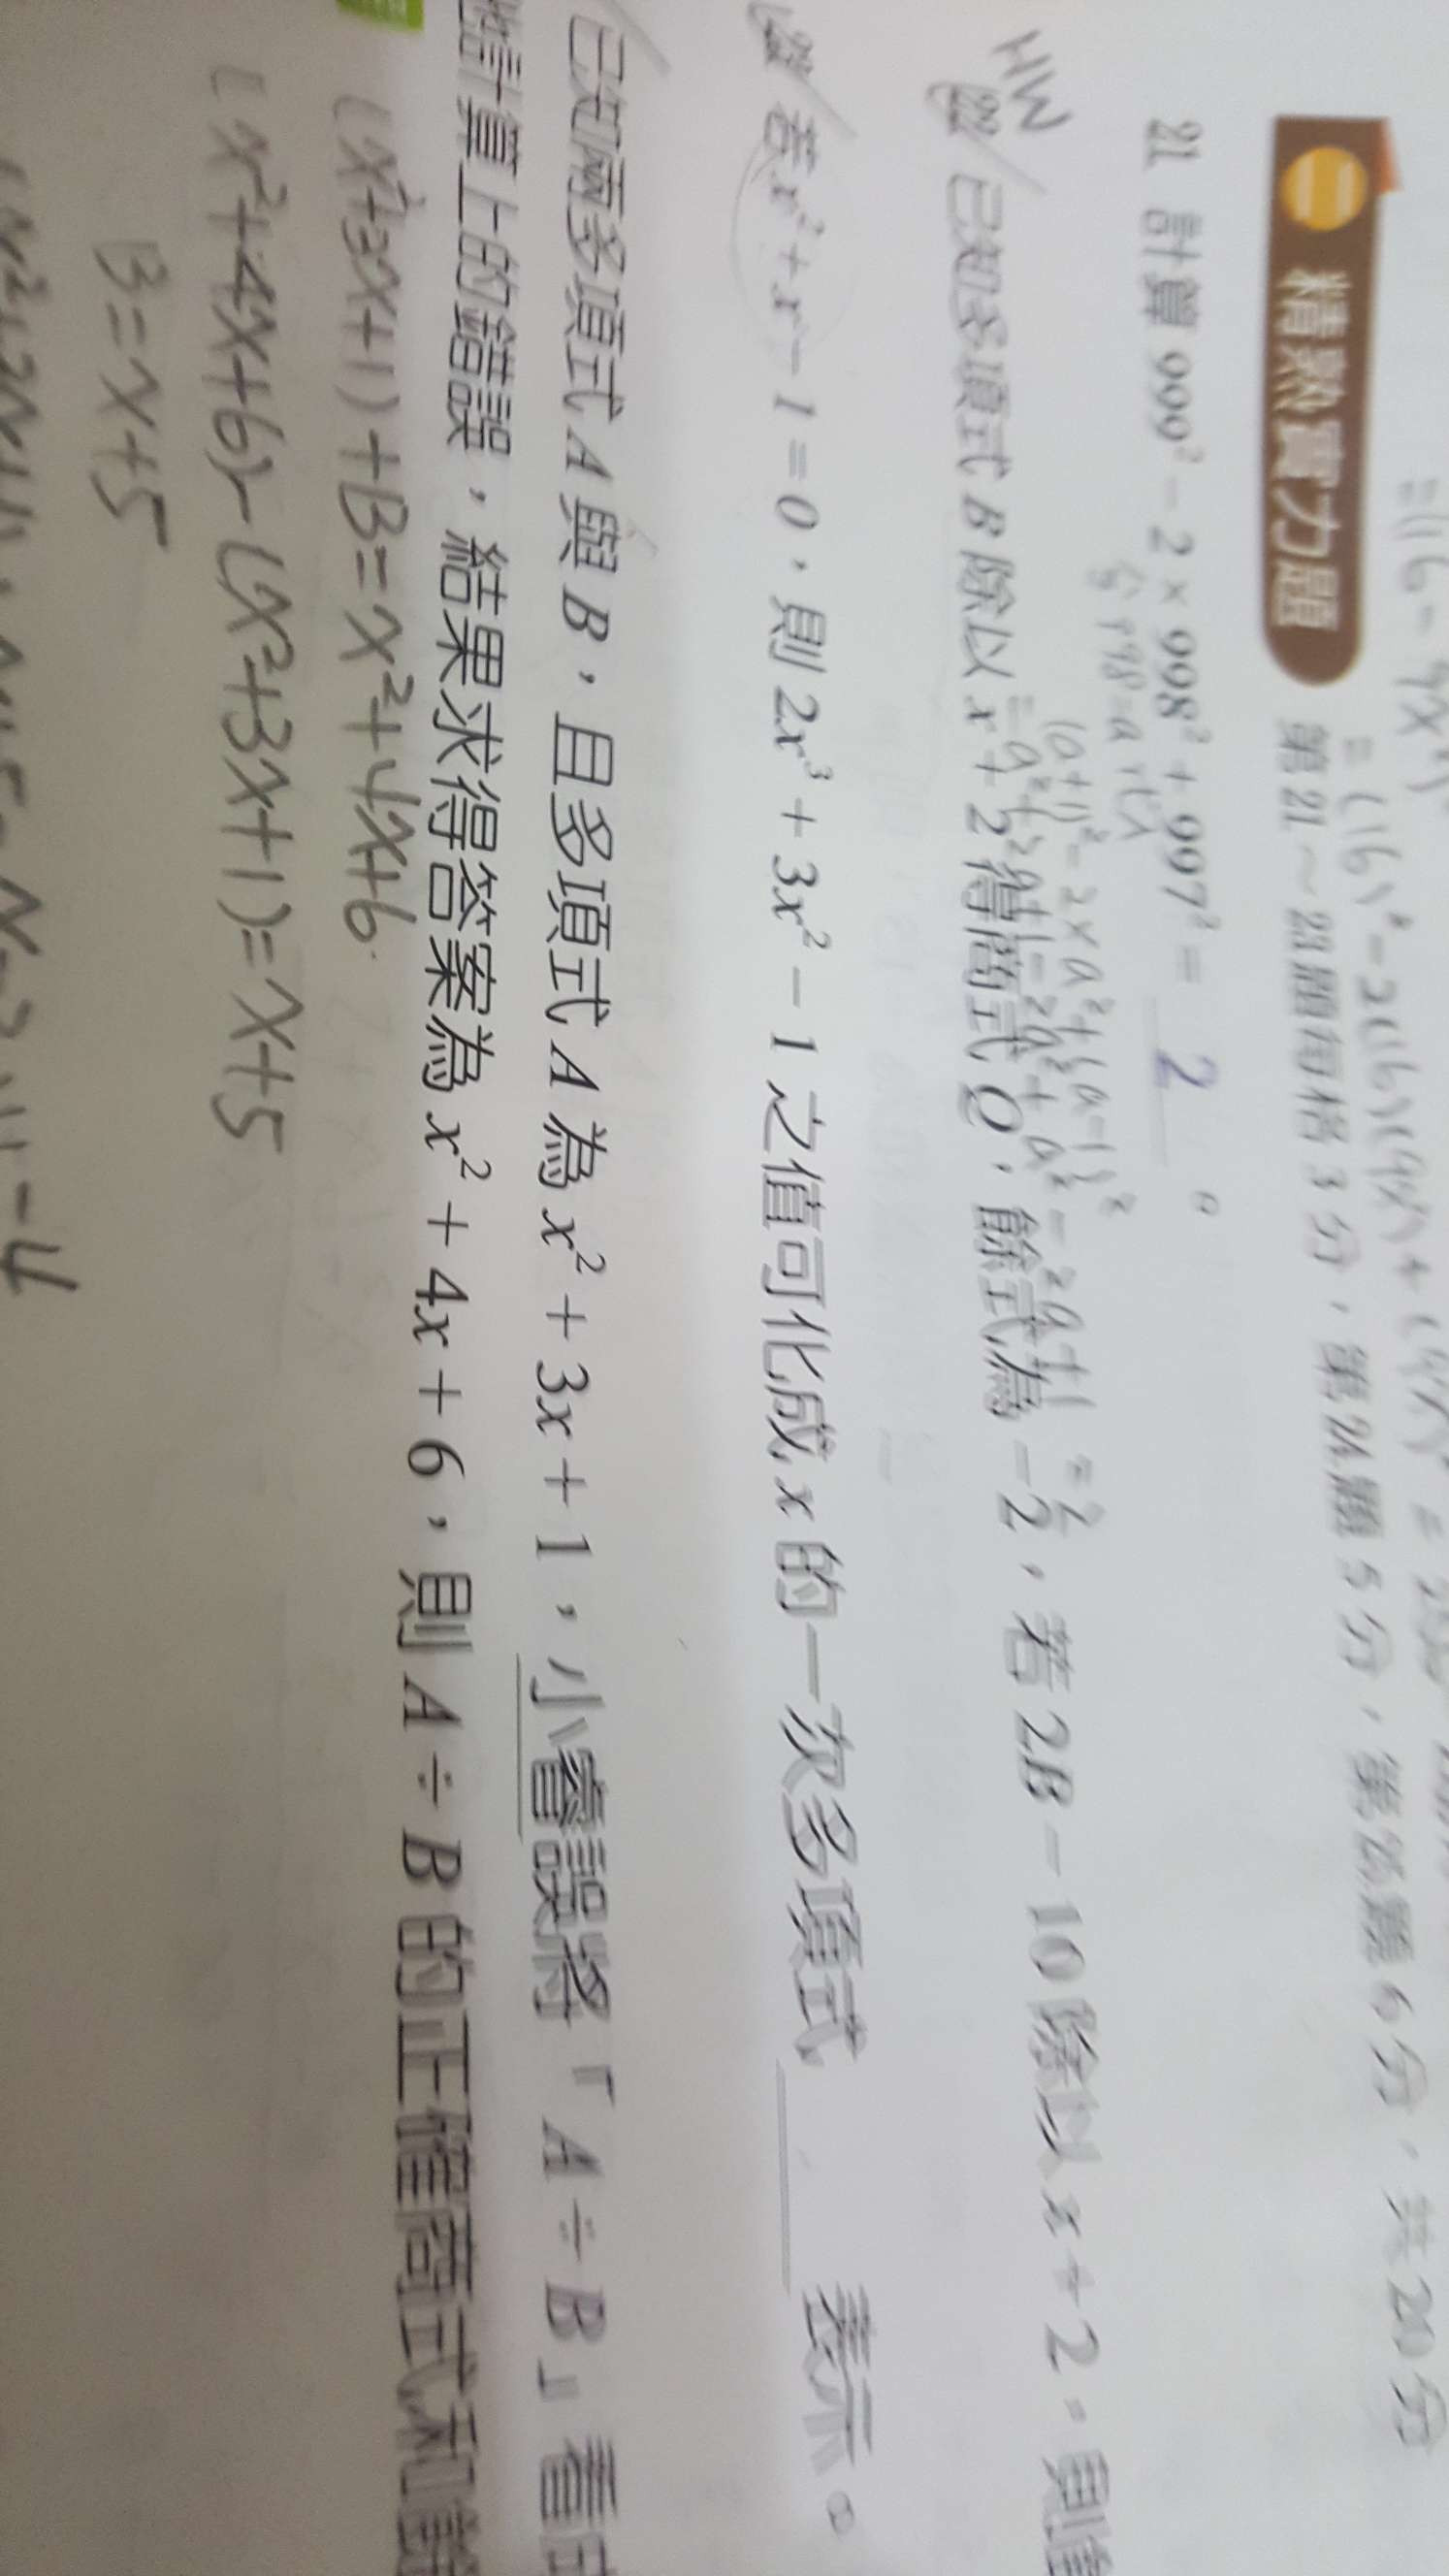 =(16-9x²)²
=(16)²-2(16)(9x²)+(9x²)²=
精熟實力題 第21～23題每格3分，第24題5分，第25題6分，共20分
21. 計算 999² − 2 × 998² + 997² = 2 。
(a+1)²-2×a²+(a-1)²
=a²+2a+1-2a²+a²-2a+1=2
HW
22. 已知多項式 B 除以 x + 2 得商式 Q，餘式為 −2，若 2B − 10 除以 x + 2，則
23. 若 x² + x − 1 = 0，則 2x³ + 3x² − 1 之值可化成 x 的一次多項式 表示。
已知兩多項式 A 與 B，且多項式 A 為 x² + 3x + 1，小睿誤將「A ÷ B」看
計算上的錯誤，結果求得答案為 x² + 4x + 6，則 A ÷ B 的正確商式和
(x²+3x+1)+B=x²+4x+6.
(x²+4x+6)-(x²+3x+1)=x+5
B=x+5